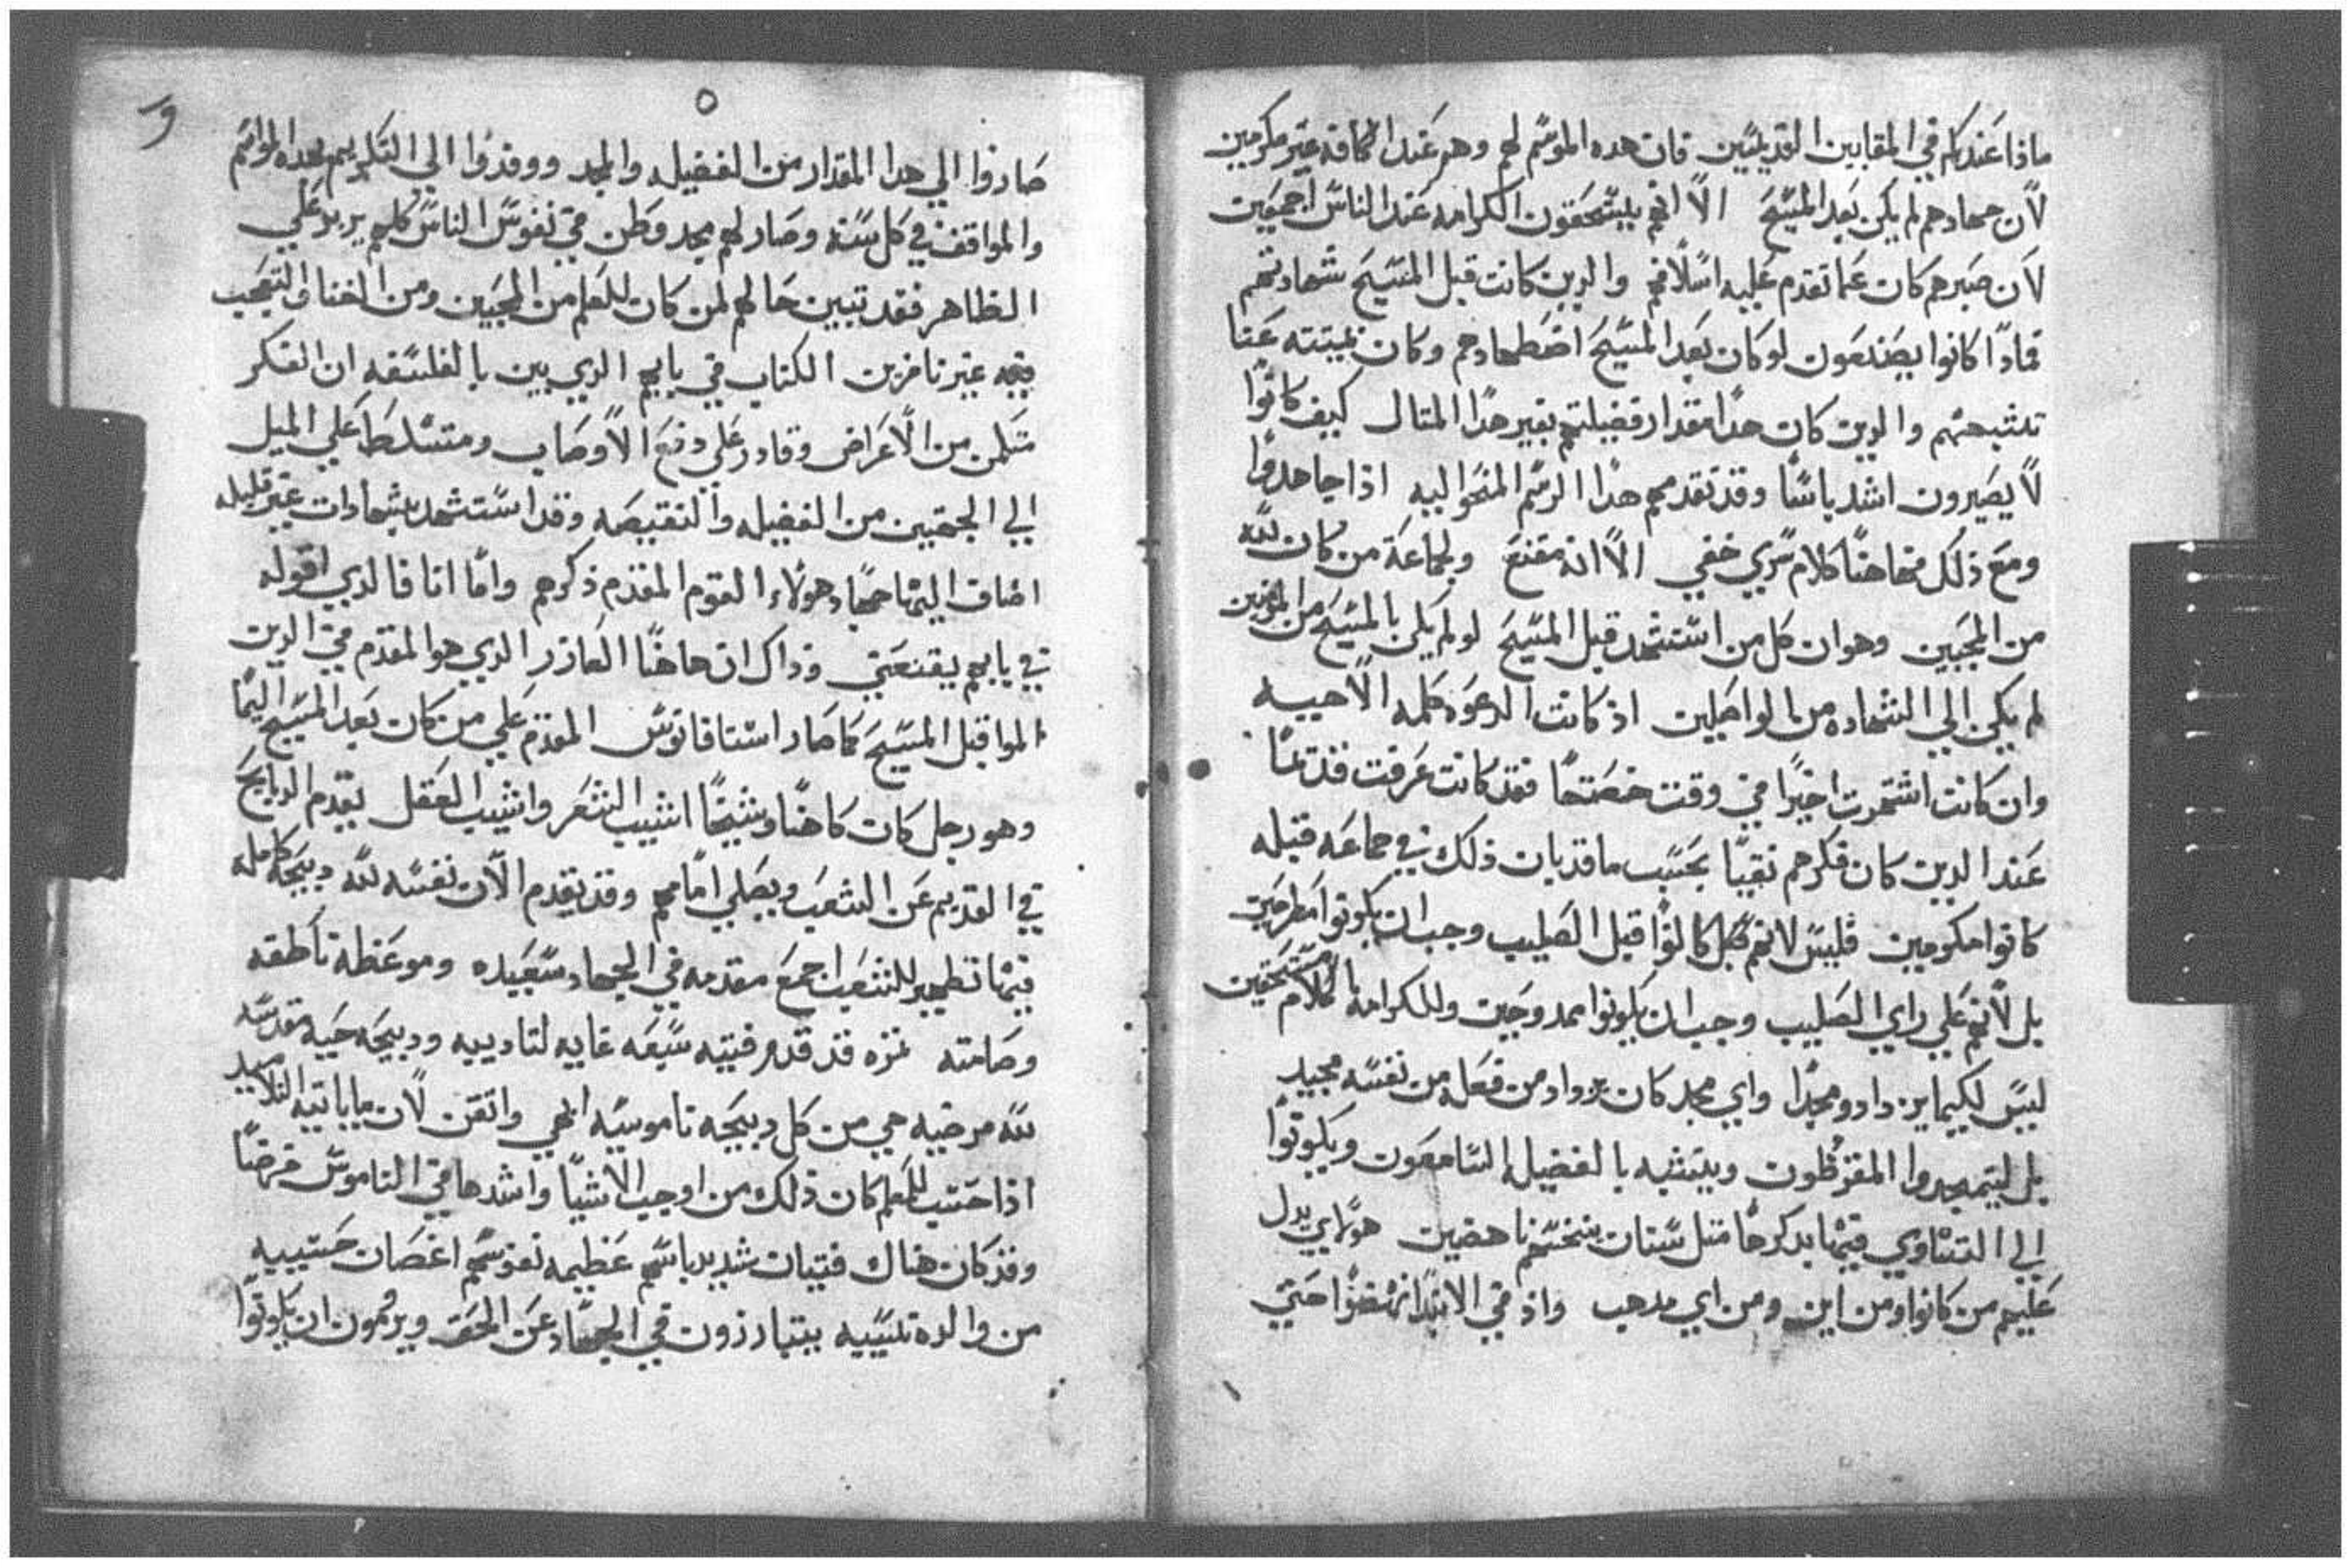 ماذا عندكم في المقابيين القديسين فان هده الموسم لهم وهم عند الكافه غير مكرمين
لان جهادهم لم يكن بعد المسيح الا انهم يستحقون الكرامه عند الناس اجمعين
لان صبرهم كان عما تقدم عليه اسلافهم والدين كانت قبل المسيح شهادتهم
فمادا كانوا يصنعون لو كان بعد المسيح اضطهادهم وكان لميتته عنا
تشبههم والدين كان هدا مقدار فضيلتهم بغير هدا المتال كيف كانوا
لا يصيرون اشد باسا وقد تقدمهم هدا الرسم المنحوا اليه اذا جاهدوا
ومع ذلك فهاهنا كلام سري خفي الا انه مقنع ولجماعة من كان لله
من المحبين وهو ان كل من استشهد قبل المسيح لو لم يكن بالمسيح من المومنين
لم يكن الي الشهاده من الواصلين اذ كانت الدعوه كلمه الاهيه
وان كانت اشتهرت اخيرا في وقت خصتها فقد كانت عرفت قديما
عند الدين كان فكرهم نقيا بحسب ما قد بان ذلك في جماعه قبله
كانوا مكرمين فليس لانهم كانوا قبل الصليب وجب ان يكونوا مطرحين
بل لانهم علي راي الصليب وجب ان يكونوا ممدوحين وللكرامه بالكلام مستحقين
ليس لكيما يزدادو مجدا واي مجد كان يزداد من فعله من نفسه مجيد
بل ليتمجدوا المقرظون ويتشبه بالفضيله السامعون ويكونوا
الي التساوي فيما بدكرها متل سنات بنخسهم ناهضين هولاي يدل
عليهم من كانوا ومن اين ومن اي مدهب واذ في الابتدا نهضوا حتي
٥
صاروا الي هدا المقدار من الفضيله والمجد ووفدوا الي التكريم بهده المواسم
والمواقف في كل سنه وصار لهم مجد وطن في نفوس الناس كلهم يربو علي
الظاهر فقد تبين حالهم لمن كان للعلم من المحبين ومن اصناف التعجب
فيه غير نافرين الكتاب في بابهم الدي بين بالفلسفه ان الفكر
متمكن من الاعراض وقادر علي دفع الاوصاب ومتسلط علي الميل
الي الجهتين من الفضيله والنقيصه وقد استشهد بشهادات غير قليله
اضاف اليها جهاد هولاء القوم المقدم ذكرهم واما انا فالدي اقوله
في بابهم يقنعني وذاك ان هاهنا العازر الدي هو المقدم في الدين
الموا قبل المسيح كما صار استافانوس المقدم علي من كان بعد المسيح اليما
وهو رجل كان كاهنا وشيخا اشيب الشعر واشيب العقل يقدم الدبايح
في القديم عن الشعب ويصلي امامهم وقد يقدم الان نفسه لله دبيحه كامله
فيها تطهير للشعب اجمع مقدمه في الجهاد سعيده وموعظة ناطقه
وصامته نزه قد قدم فتيه سبعه غايه لتاديبه ودبيحه حيه مقدسه
لله مرضيه هي من كل دبيحه ناموسيه ابهي واتقن لان ما ياتيه التلاميد
اذا حسب للمعلم كان ذلك من اوجب الاشيا واشدها في الناموس فرضا
وقد كان هناك فتيان شديد باسهم عظيمه نفوسهم اغصان حسيبه
من والده نسيبه يبتادرون في الجهاد عن الحق ويرومون ان يكونوا